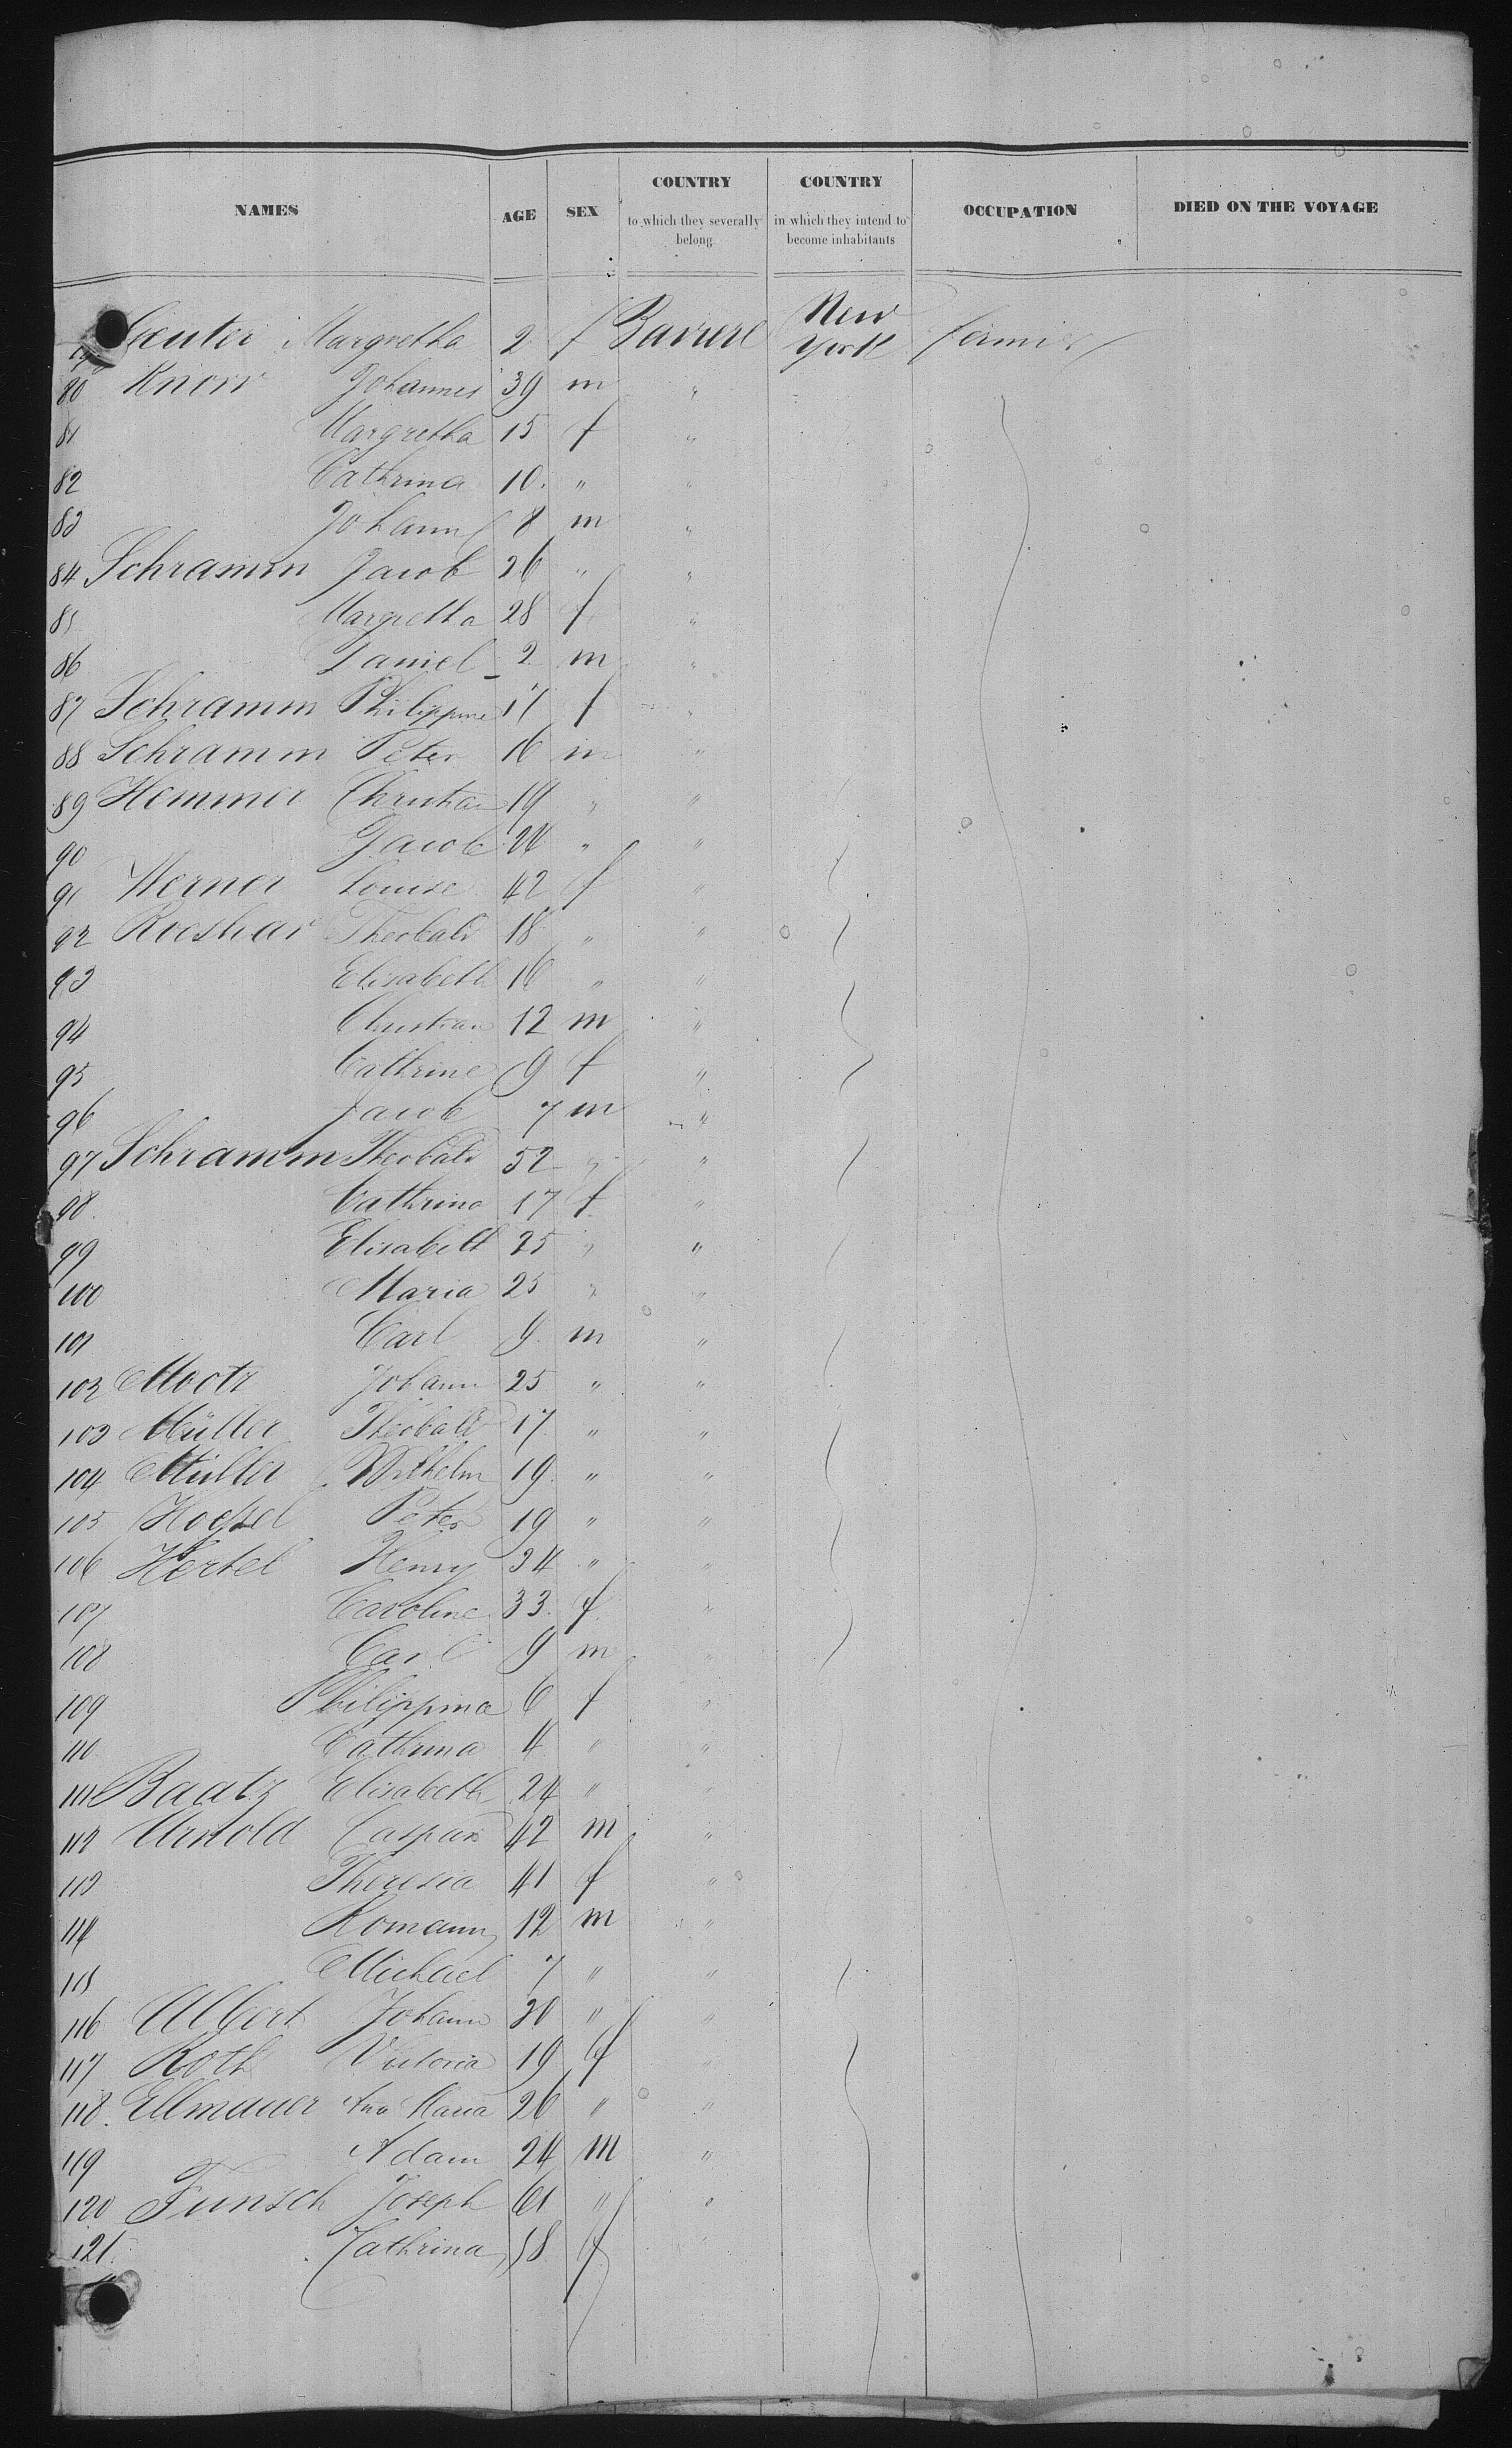 NAMES AGE SEX COUNTRY to which they severally belong COUNTRY in which they intend to become inhabitants OCCUPATION DIED ON THE VOYAGE
Margretha 2 f Baviere New York fermier
80 Knorr Johannes 39 m "
81 Margretha 15 f "
82 Cathrina 10. " "
83 Johann 8 m "
84 Schramm Jacob 26 " "
85 Margretha 28 f "
86 Daniel 2 m "
87 Schramm Philippine f "
88 Schramm Peter 16 m "
89 Hemmer Christian 19 " "
90 Jacob 24 " "
91 Werner Louise 42 f "
92 Theobald 18 " "
93 Elisabeth 16 " "
94 Christian 12 m "
95 Cathrine 9 f "
96 Jacob 7 m "
97 Schramm Theobald 52 " "
98 Cathrina 17 f "
99 Elisabeth 25 " "
100 Maria 25 " "
101 Carl 9 m "
102 Johann 25 " "
103 Müller Theobald 17 " "
104 Müller Wilhelm 19 " "
105 Peter 19 " "
106 Hertel Henry 34 " "
107 Caroline 33 f "
108 Carl 9 m "
109 Philippina 6 f "
110 Cathrina 4 " "
111 Baatz Elisabeth 24 " "
112 Arnold Caspar 42 m "
113 Theresia 41 f "
114 Romann 12 m "
115 Michael 7 " "
116 Albert Johann 30 " "
117 Roth Victoria 19 f "
118. Ellmauer Ana Maria 26 " "
119 Adam 24 m "
120 Funsch Joseph 61 " "
121. Cathrina 58 f "